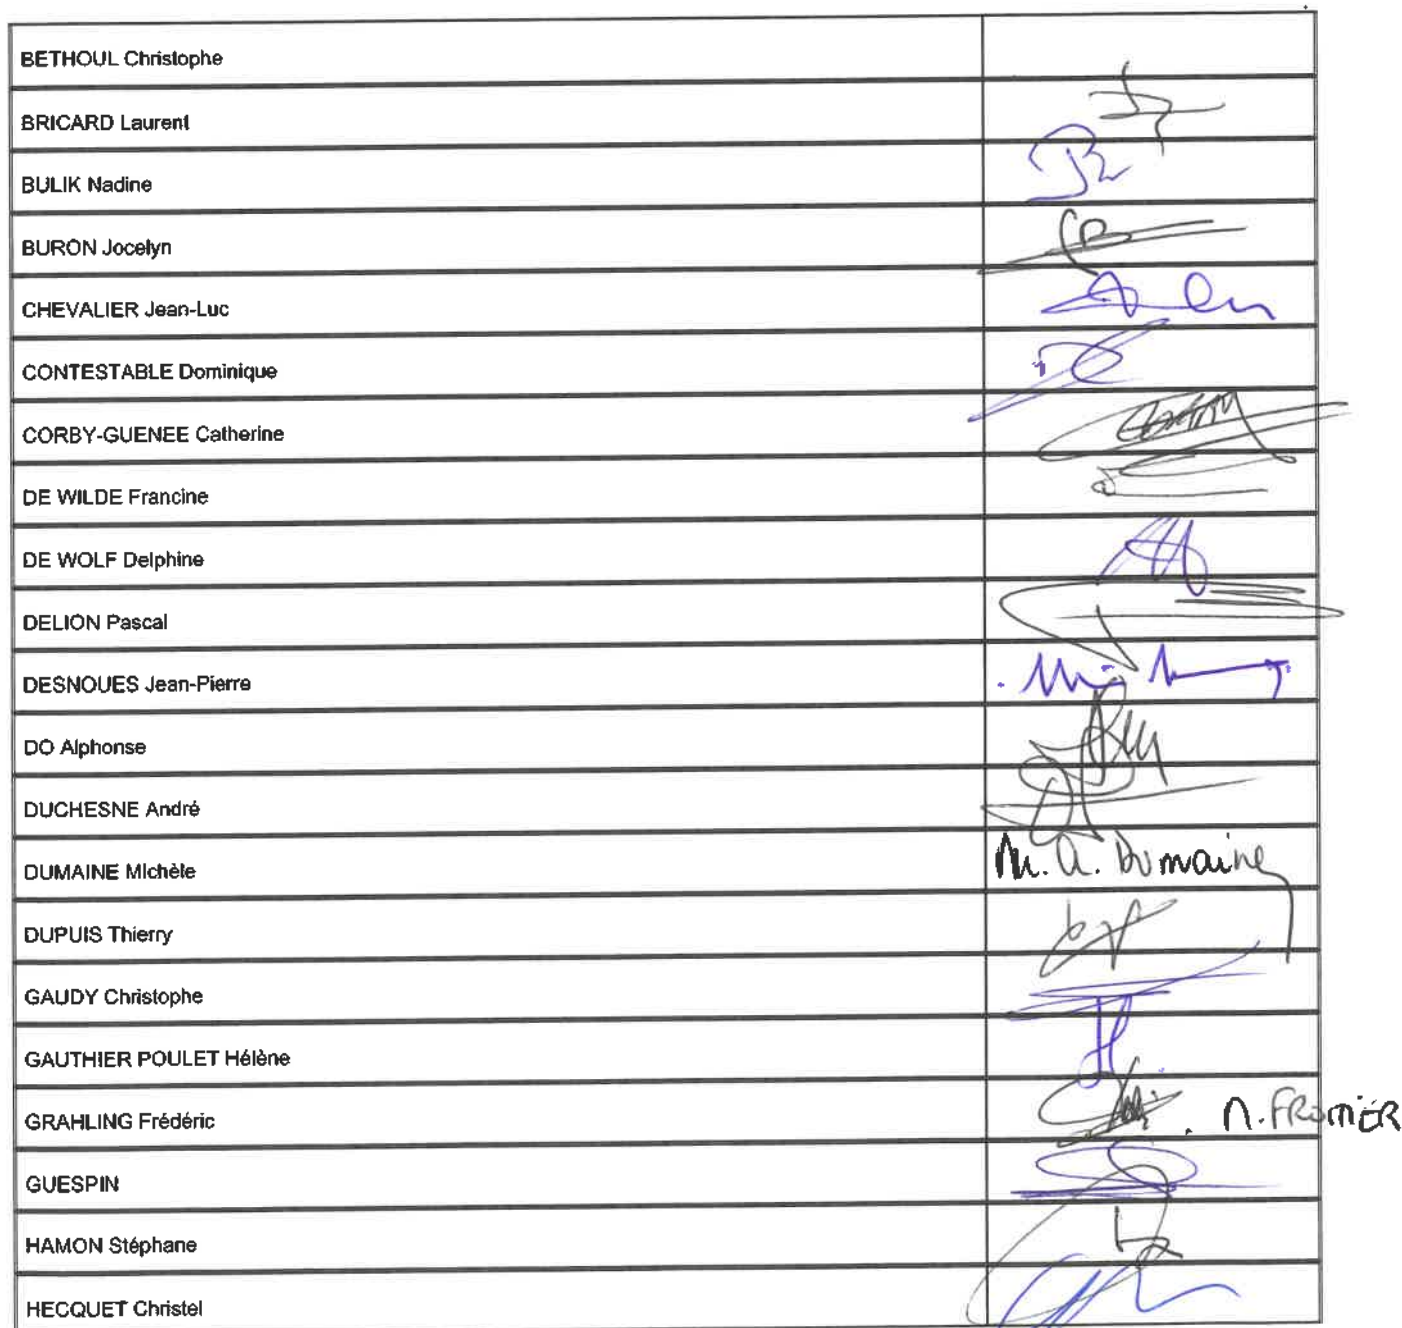 BETHOUL Christophe
BRICARD Laurent
BULIK Nadine
BURON Jocelyn
CHEVALIER Jean-Luc
CONTESTABLE Dominique
CORBY-GUENEE Catherine
DE WILDE Francine
DE WOLF Delphine
DELION Pascal
DESNOUES Jean-Pierre
DO Alphonse
DUCHESNE André
DUMAINE Michèle M. A. Dumaine
DUPUIS Thierry
GAUDY Christophe
GAUTHIER POULET Hélène
GRAHLING Frédéric N. FROMIER
GUESPIN
HAMON Stéphane
HECQUET Christel